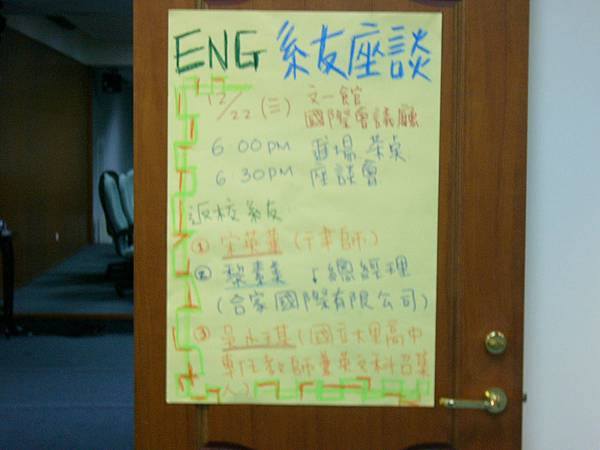 ENG 系友座談
12/22 (三) 文一館
國際會議廳
6 00PM 進場 茶桌
6 30PM 座談會
返校系友
① 宋英華 (律師)
② 黎素美 總經理
(合家國際有限公司)
③ (國立大里高中
專任教師兼英文科召集
人)